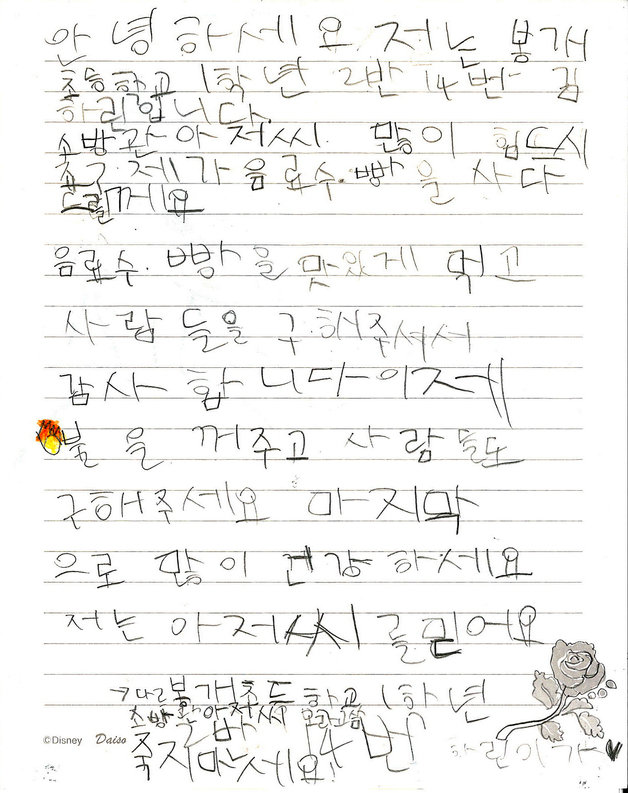 안녕하세요 저는 봉개
초등학교 1학년 2반 14번 김
하린입니다.
소방관아저씨. 많이 힘드시
죠? 제가 음료수. 빵을 사다
드릴께요
음료수. 빵을 맛있게 먹고
사람들을 구해주셔서
감사합니다 이제
불을 꺼주고 사람들도
구해주세요 마지막
으로 많이 건강하세요
저는 아저씨를 믿어요
봉개초등학교 1학년
소방관아저씨
14번
죽지마세요!
하린이가
©Disney Daiso